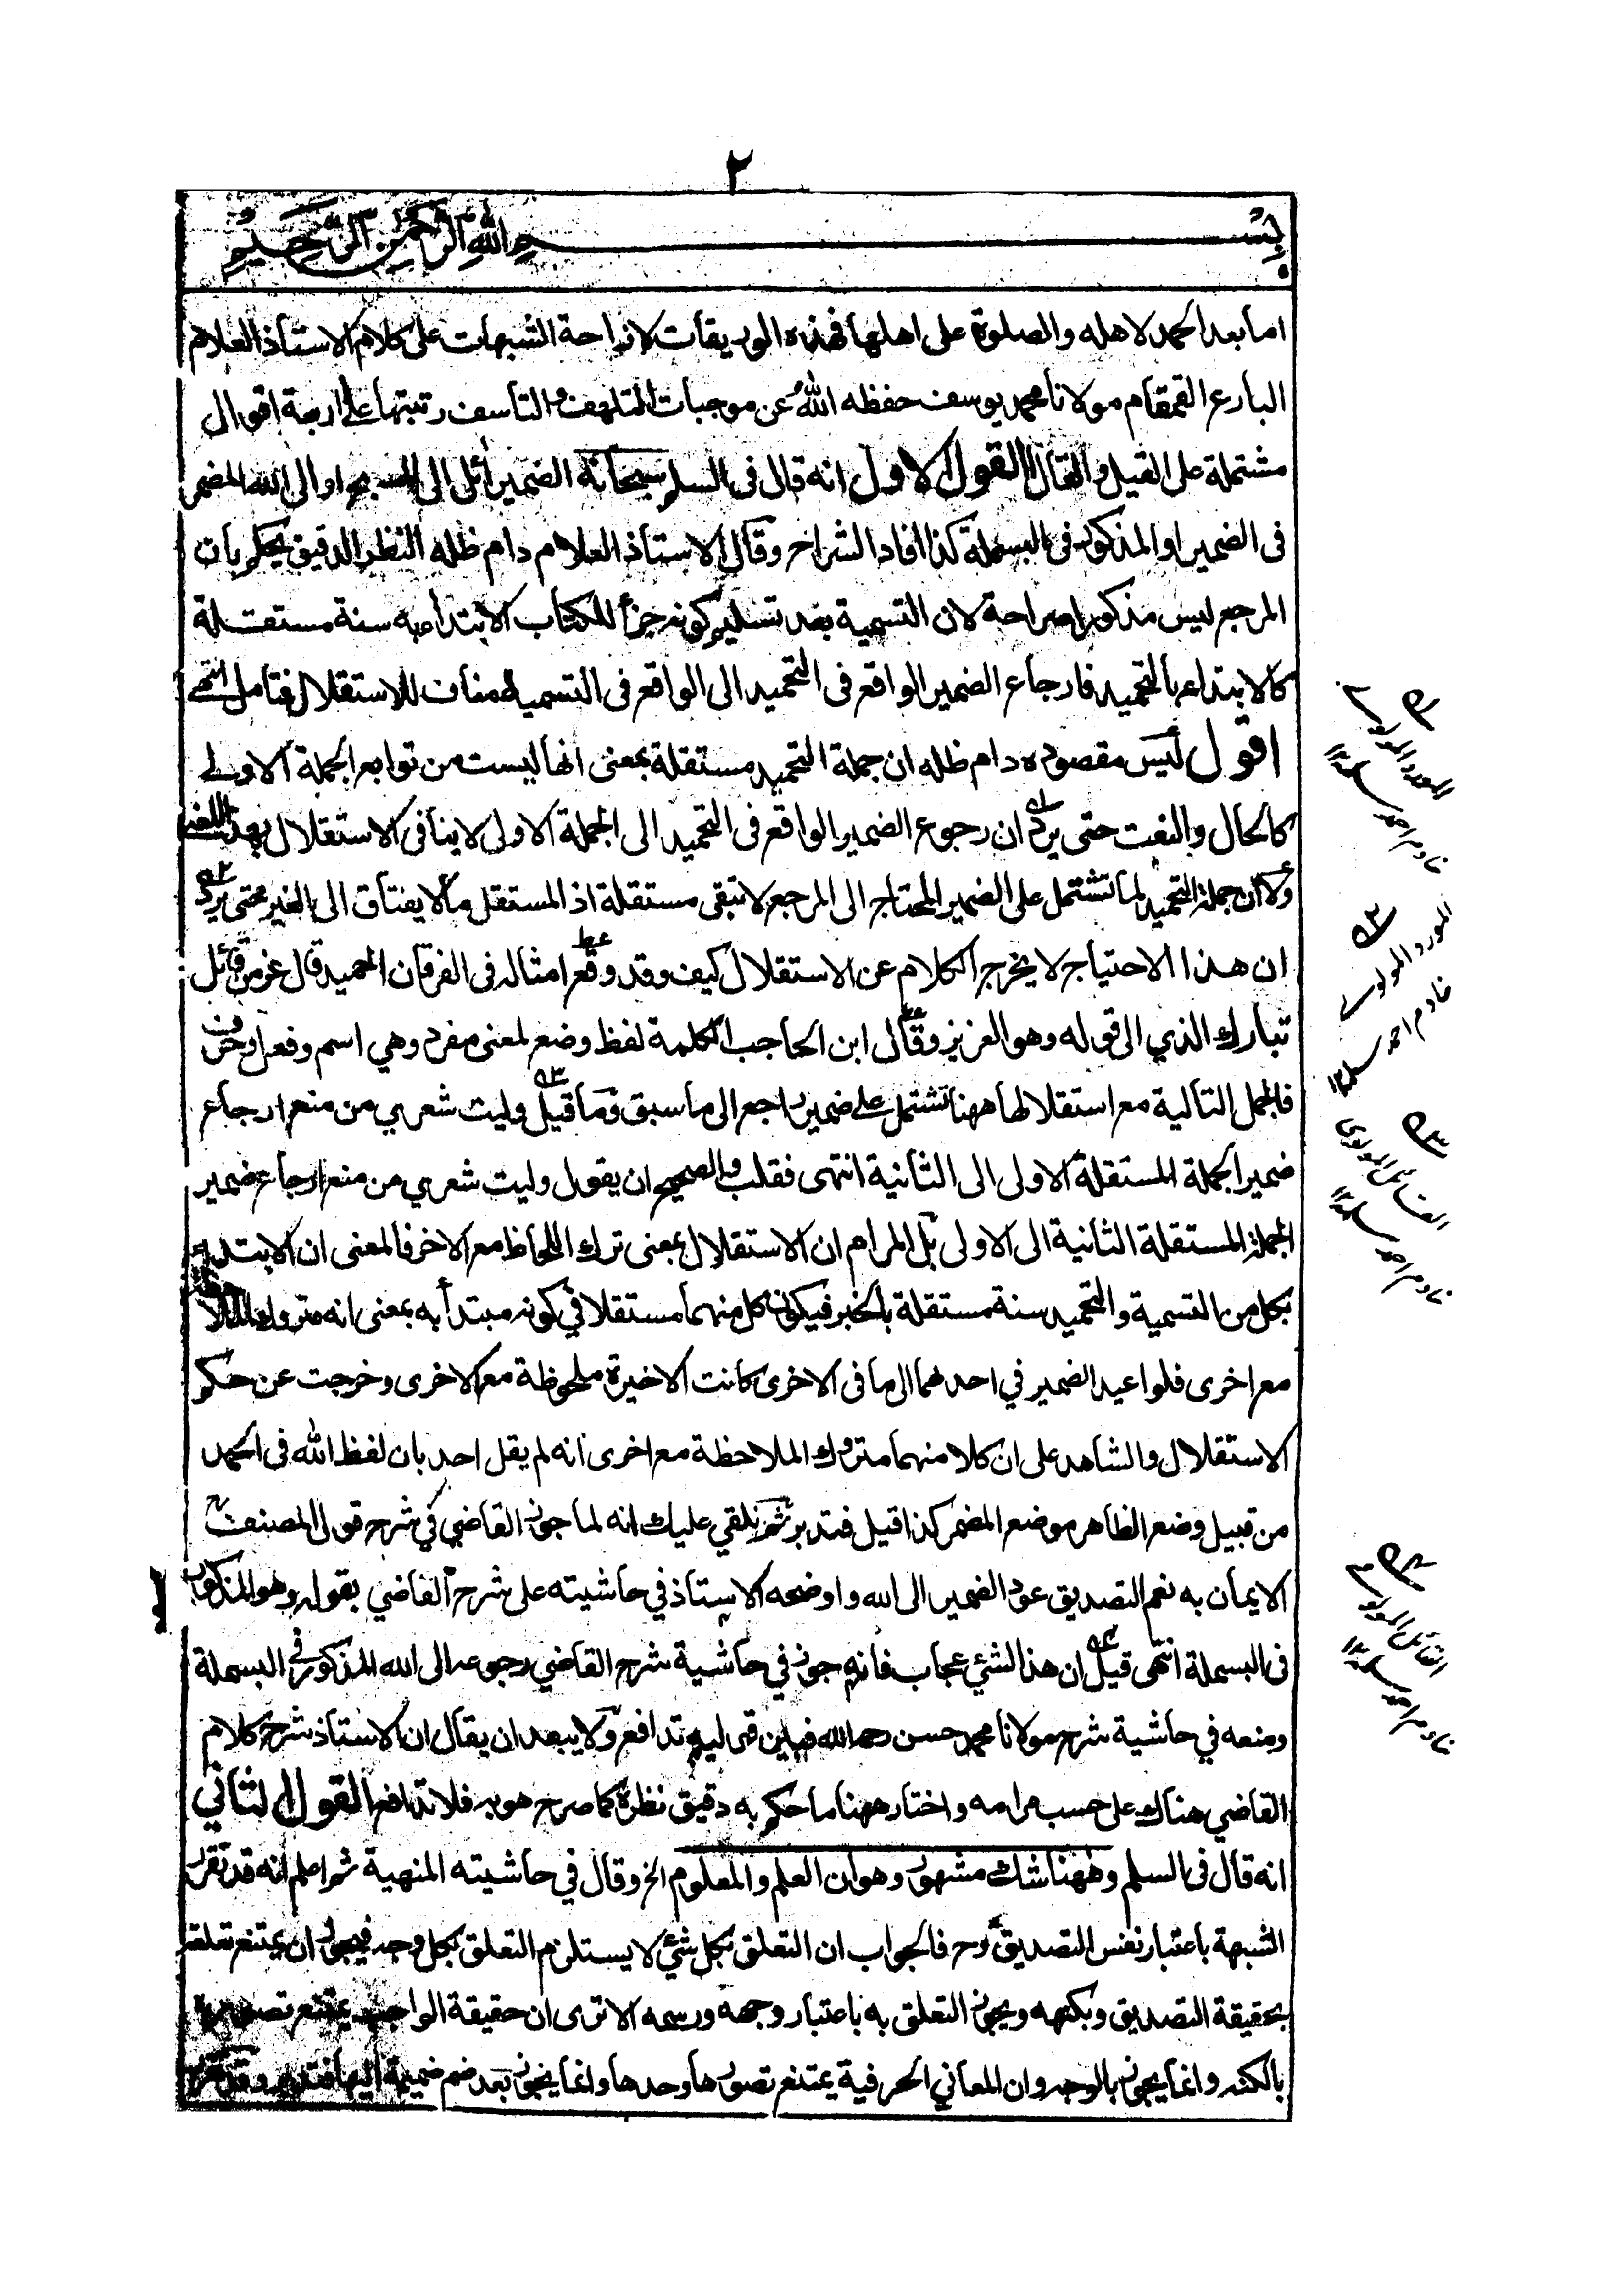 ٢
بسم الله الرحمن الرحيم
اما بعد الحمد لاهله والصلوة على اهلها فهذه الوريقات لازاحة الشبهات على كلام الاستاذ العلام
البارع القمقام مولانا محمد يوسف حفظه الله عن موجبات التلهف والتأسف رتبتها على اربعة اقوال
مشتملة على القيل والقال القول الاول انه قال فى السلم سبحانه الضمير أئل الى المسبح او الى الله المضمر
فى الضمير او المذكور فى البسملة كذا افاد الشراح وقال الاستاذ العلام دام ظله النظر الدقيق يحكم بان
المرجع ليس مذكورا صراحة لان التسمية بعد تسليم كونه جزأ للكتاب الابتداء به سنة مستقلة
كالابتداء بالتحميد فارجاع الضمير الواقع فى التحميد الى الواقع فى التسمية مناف للاستقلال فتامل انتهى
اقول ليس مقصوده دام ظله ان جملة التحميد مستقلة بمعنى انها ليست من توابع الجملة الاولى
كالحال والنعت حتى يرد ان رجوع الضمير الواقع فى التحميد الى الجملة الاولى لا ينافى الاستقلال بهذا المعنى
ولا ان جملة التحميد لما تشتمل على الضمير المحتاج الى المرجع لا تبقى مستقلة اذ المستقل ما لا يفتاق الى الغير حتى يرد
ان هذا الاحتياج لا يخرج الكلام عن الاستقلال كيف وقد وقع امثاله فى الفرقان الحميد قال عز من قائل
تبارك الذي الى قوله وهو العزيز وقال ابن الحاجب الكلمة لفظ وضع لمعنى مفرد وهي اسم وفعل وحرف
فالجمل التالية مع استقلالها ههنا تشتمل على ضمير راجع الى ما سبق وما قيل وليت شعري من منع ارجاع
ضمير الجملة المستقلة الاولى الى الثانية انتهى فقلب والصحيح ان يقول وليت شعري من منع ارجاع ضمير
الجملة المستقلة الثانية الى الاولى بل المرام ان الاستقلال بمعنى ترك اللحاظ مع الاخر فالمعنى ان الابتداء
بكل من التسمية والتحميد سنة مستقلة بالخبر فيكون كل منهما مستقلا في كونه مبتدأ به بمعنى انه متروك
مع اخرى فلو اعيد الضمير في احدهما الى ما فى الاخرى كانت الاخيرة ملحوظة مع الاخرى وخرجت عن حكم
الاستقلال والشاهد على ان كلا منهما متروك الملاحظة مع اخرى انه لم يقل احد بان لفظ الله فى الحمد
من قبيل وضع الظاهر موضع المضمر كذا قيل فتدبر ثم نلقي عليك انه لما جوز القاضي في شرح قول المصنف
الايمان به نعم التصديق عود الضمير الى الله واوضحه الاستاذ في حاشيته على شرح القاضي بقوله وهو المذكور
فى البسملة انتهى قيل ان هذا لشئ عجاب فانه جوز في حاشية شرح القاضي رجوعه الى الله المذكور فى البسملة
ومنعه في حاشية شرح مولانا محمد حسن رحمه الله فبين قوليه تدافع ولا يبعد ان يقال ان الاستاذ شرح كلام
القاضي هناك على حسب مرامه واختار ههنا ما حكم به دقيق نظره كما صرح هو به فلا تدافع القول الثاني
انه قال فى السلم وههنا شك مشهور وهو ان العلم والمعلوم الخ وقال في حاشيته المنهية ثم اعلم انه قد تقرر
الشبهة باعتبار نفس التصديق وح فالجواب ان التعلق بكل شئ لا يستلزم التعلق بكل وجه فيجوز ان يمتنع تعلقه
بحقيقة التصديق وبكنهه ويجوز التعلق به باعتبار وجهه ورسمه الا ترى ان حقيقة الواجب يمتنع تصوره
بالكنه وانما يجوز بالوجه وان المعاني الحرفية يمتنع تصورها وحدها وانما يجوز بعد ضم ضميمة اليها فتدبر وقد تقرر
المورد المولوي
خادم احمد سلمه ١٢
المورد المولوي
خادم احمد سلمه ١٢
القائل المولوي
خادم احمد سلمه ١٢
القائل المولوي
خادم احمد سلمه ١٢